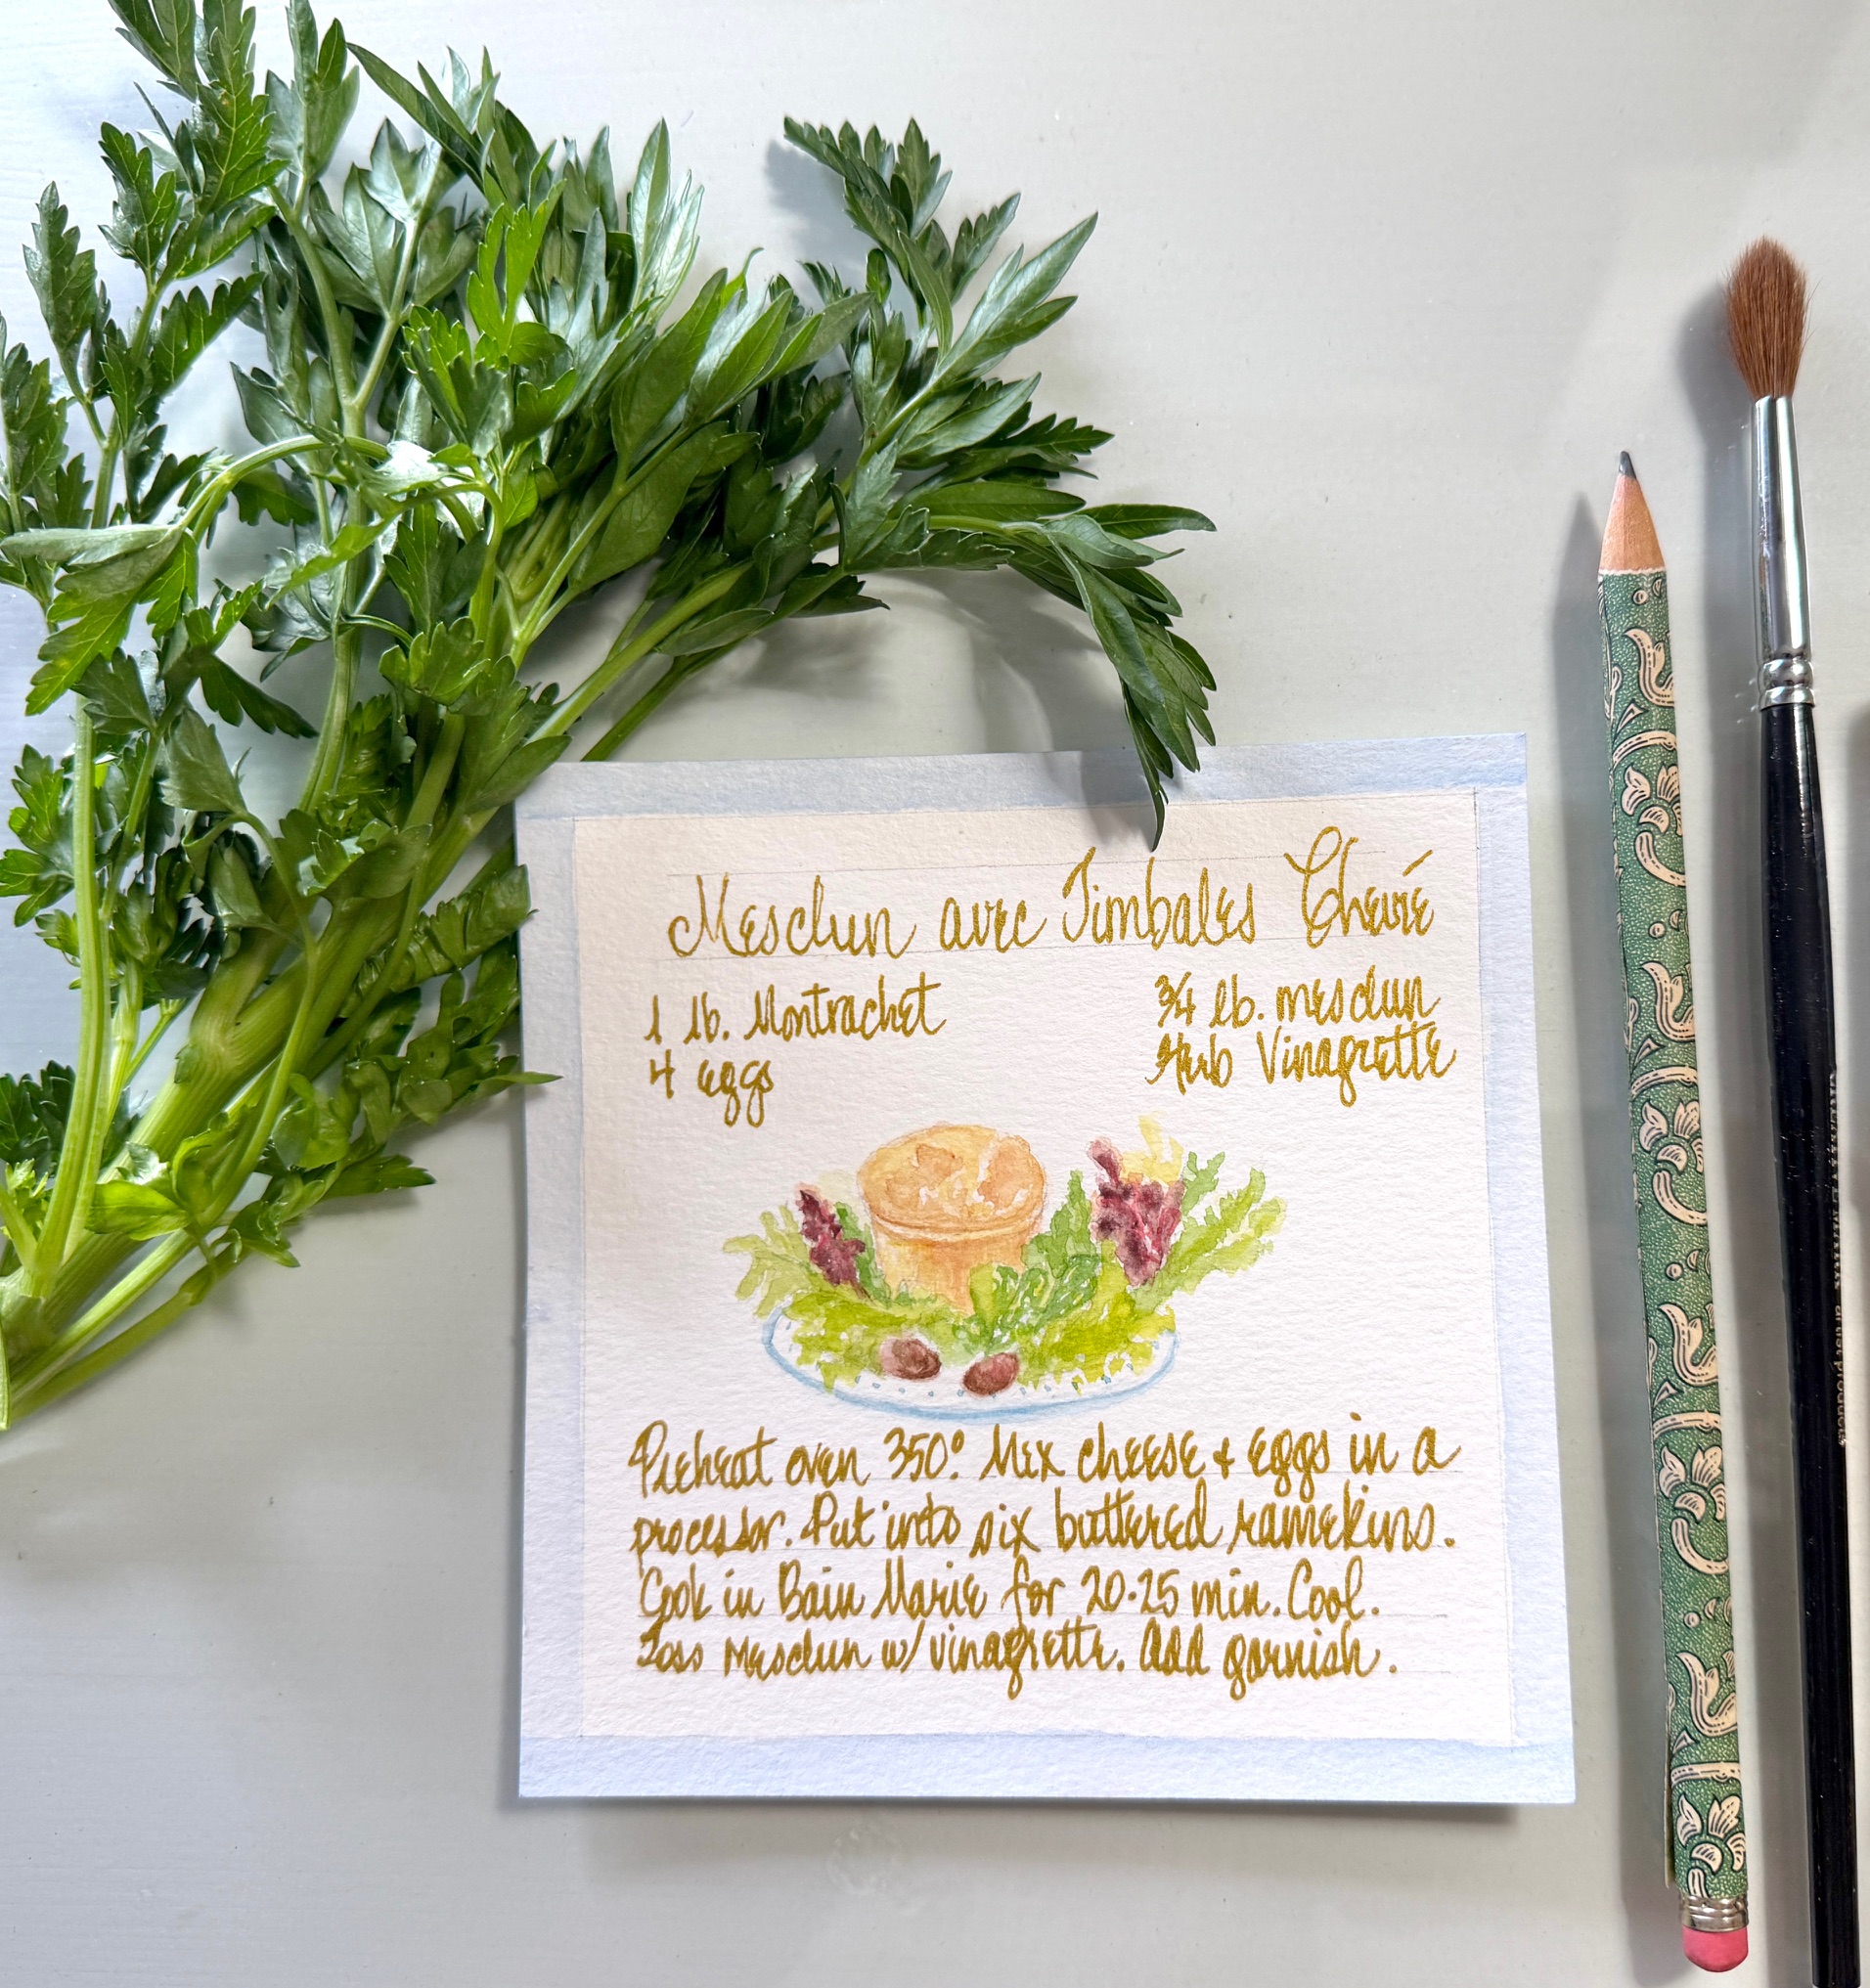 Mesclun avec Timbales Chevré
1 lb. Montrachet
4 eggs
3/4 lb. mesclun
Herb Vinagrette
Preheat oven 350° Mix cheese + eggs in a
processor. Put into six buttered ramekins.
Cook in Bain Marie for 20-25 min. Cool.
Toss Mesclun w/ vinagrette. Add garnish.
artist products